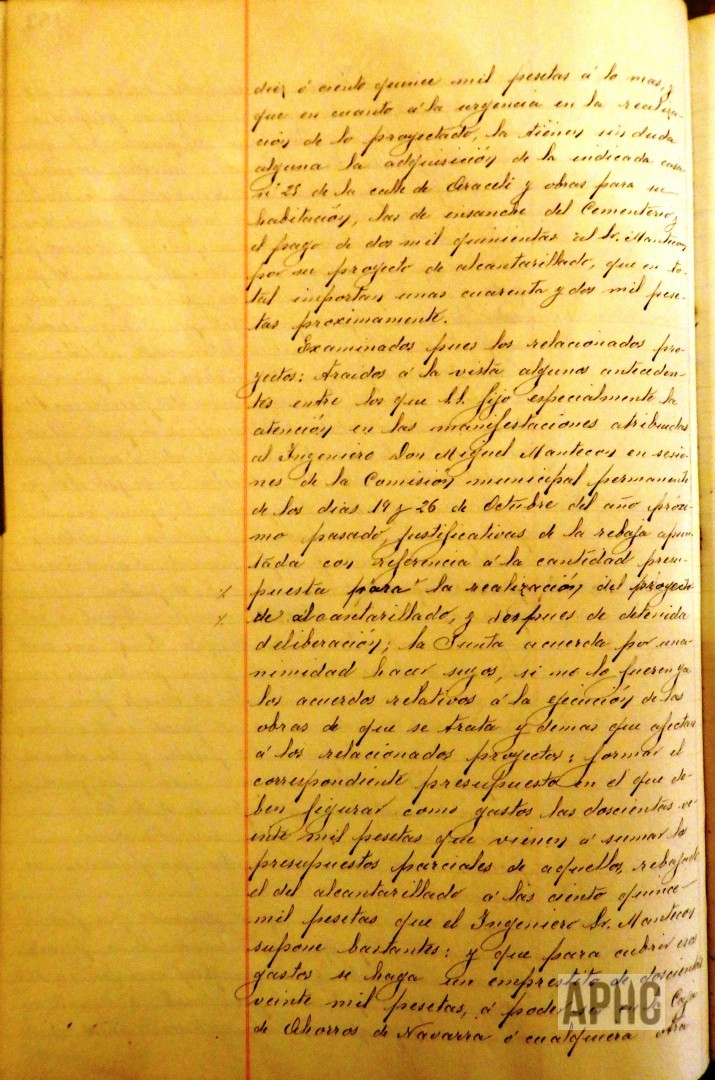 diez ó ciento quince mil pesetas á lo mas, y
que en cuanto á la urgencia en la realiza-
ción de lo proyectado, la tienen sin duda
alguna la adquisición de la indicada casa
nº 25 de la calle de Araceli y obras para su
habitación, las de ensanche del Cementerio, y
el pago de dos mil quinientas al Sr. Mantecon
por su proyecto de alcantarillado, que en to-
tal importan unas cuarenta y dos mil pese-
tas proximamente.
Examinados pues los relacionados pro-
yectos; traidos á la vista algunos anteceden-
tes entre los que S.S. fijó especialmente la
atención en las manifestaciones atribuidas
al Ingeniero Don Miguel Mantecon en sesio-
nes de la Comisión municipal permanente
de los dias 19 y 26 de Octubre del año próxi-
mo pasado, justificativas de la rebaja apun-
tada con referencia á la cantidad presu-
puesta para la realización del proyecto
de alcantarillado, y despues de detenida
deliberación; la Junta acuerda por una-
nimidad hacer suyos, si no lo fueren ya
los acuerdos relativos á la ejecución de las
obras de que se trata y demas que afectan
á los relacionados proyectos; formar el
correspondiente presupuesto en el que de-
ben figurar como gastos las doscientas ve-
inte mil pesetas que vienen á sumar los
presupuestos parciales de aquellos, rebajado
el del alcantarillado á las ciento quince
mil pesetas que el Ingeniero Sr. Mantecon
supone bastantes: y que para cubrir esos
gastos se haga un emprestito de doscientas
veinte mil pesetas, á poder ser en la Caja
de Ahorros de Navarra ó cualquiera otra
APHC